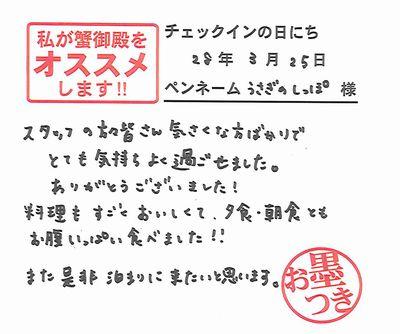 私が蟹御殿を
オススメ
します!!
チェックインの日にち
28年 3月 25日
ペンネーム うさぎのしっぽ 様
スタッフの方皆さん 気さくな方ばかりで
とても気持ちよく過ごせました。
ありがとうございました!
料理もすごくおいしくて、夕食・朝食とも
お腹いっぱい食べました!!
また是非泊まりに来たいと思います。
お墨つき